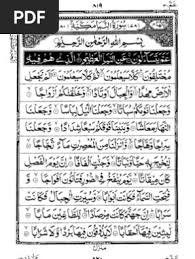 PDF
٨١٩
سُوْرَةُ النَّبَاِ مَكِّيَّةٌ
بِسْمِ اللهِ الرَّحْمٰنِ الرَّحِيْمِ
عَمَّ يَتَسَآءَلُوْنَ عَنِ النَّبَاِ الْعَظِيْمِ الَّذِيْ هُمْ فِيْهِ
مُخْتَلِفُوْنَ كَلَّا سَيَعْلَمُوْنَ ثُمَّ كَلَّا سَيَعْلَمُوْنَ اَلَمْ نَجْعَلِ
الْاَرْضَ مِهٰدًا وَّالْجِبَالَ اَوْتَادًا وَّخَلَقْنٰكُمْ اَزْوَاجًا وَّجَعَلْنَا
نَوْمَكُمْ سُبَاتًا وَّجَعَلْنَا الَّيْلَ لِبَاسًا وَّجَعَلْنَا النَّهَارَ
مَعَاشًا وَّبَنَيْنَا فَوْقَكُمْ سَبْعًا شِدَادًا وَّجَعَلْنَا سِرَاجًا
وَّهَّاجًا وَّاَنْزَلْنَا مِنَ الْمُعْصِرٰتِ مَآءً ثَجَّاجًا لِّنُخْرِجَ بِهٖ
حَبًّا وَّنَبَاتًا وَّجَنّٰتٍ اَلْفَافًا اِنَّ يَوْمَ الْفَصْلِ كَانَ
مِيْقَاتًا يَّوْمَ يُنْفَخُ فِي الصُّوْرِ فَتَاْتُوْنَ اَفْوَاجًا
وَّفُتِحَتِ السَّمَآءُ فَكَانَتْ اَبْوَابًا وَّسُيِّرَتِ الْجِبَالُ فَكَانَتْ
سَرَابًا اِنَّ جَهَنَّمَ كَانَتْ مِرْصَادًا لِّلطَّاغِيْنَ مَاٰبًا
لّٰبِثِيْنَ فِيْهَآ اَحْقَابًا لَا يَذُوْقُوْنَ فِيْهَا بَرْدًا وَّلَا